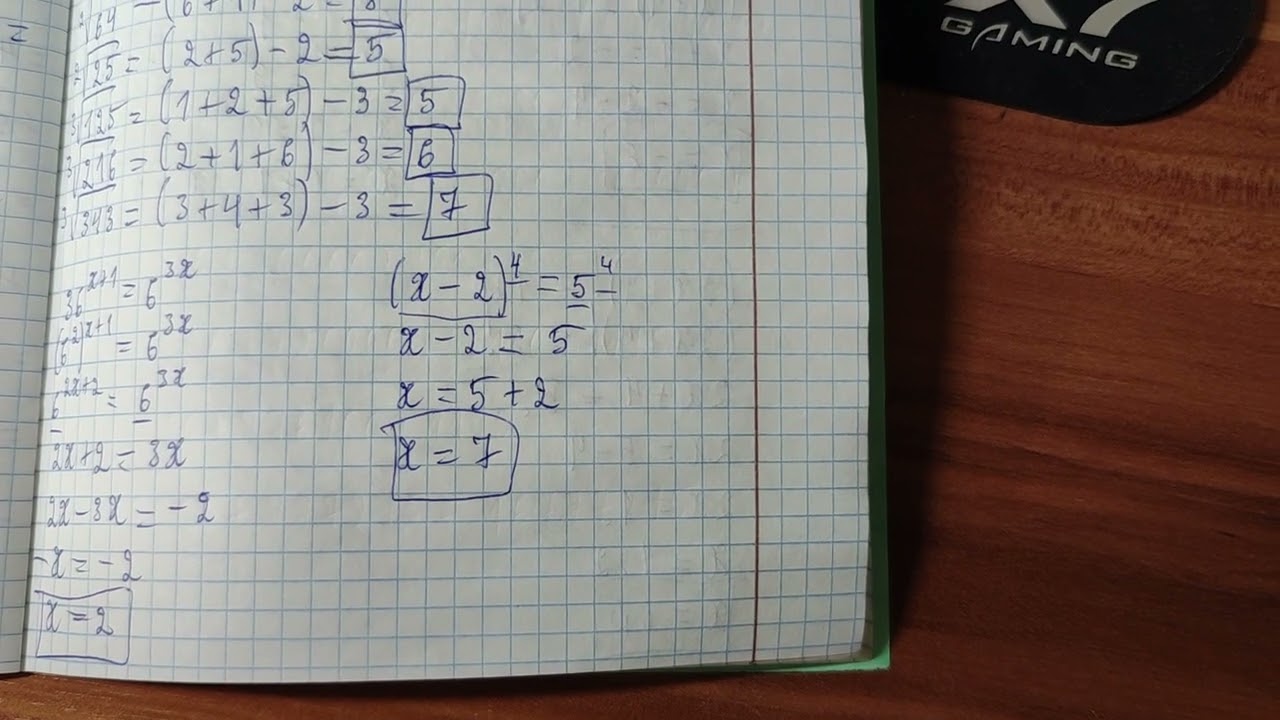 ²√64 = (6+4) - 2 = 8
²√25 = (2+5) - 2 = 5
³√125 = (1+2+5) - 3 = 5
³√216 = (2+1+6) - 3 = 6
³√343 = (3+4+3) - 3 = 7
36^(x+1) = 6^(3x)
(6²)^(x+1) = 6^(3x)
6^(2x+2) = 6^(3x)
2x+2 = 3x
2x-3x = -2
-x = -2
x = 2
(x-2)⁴ = 5⁴
x-2 = 5
x = 5+2
x = 7
=
X7
GAMING